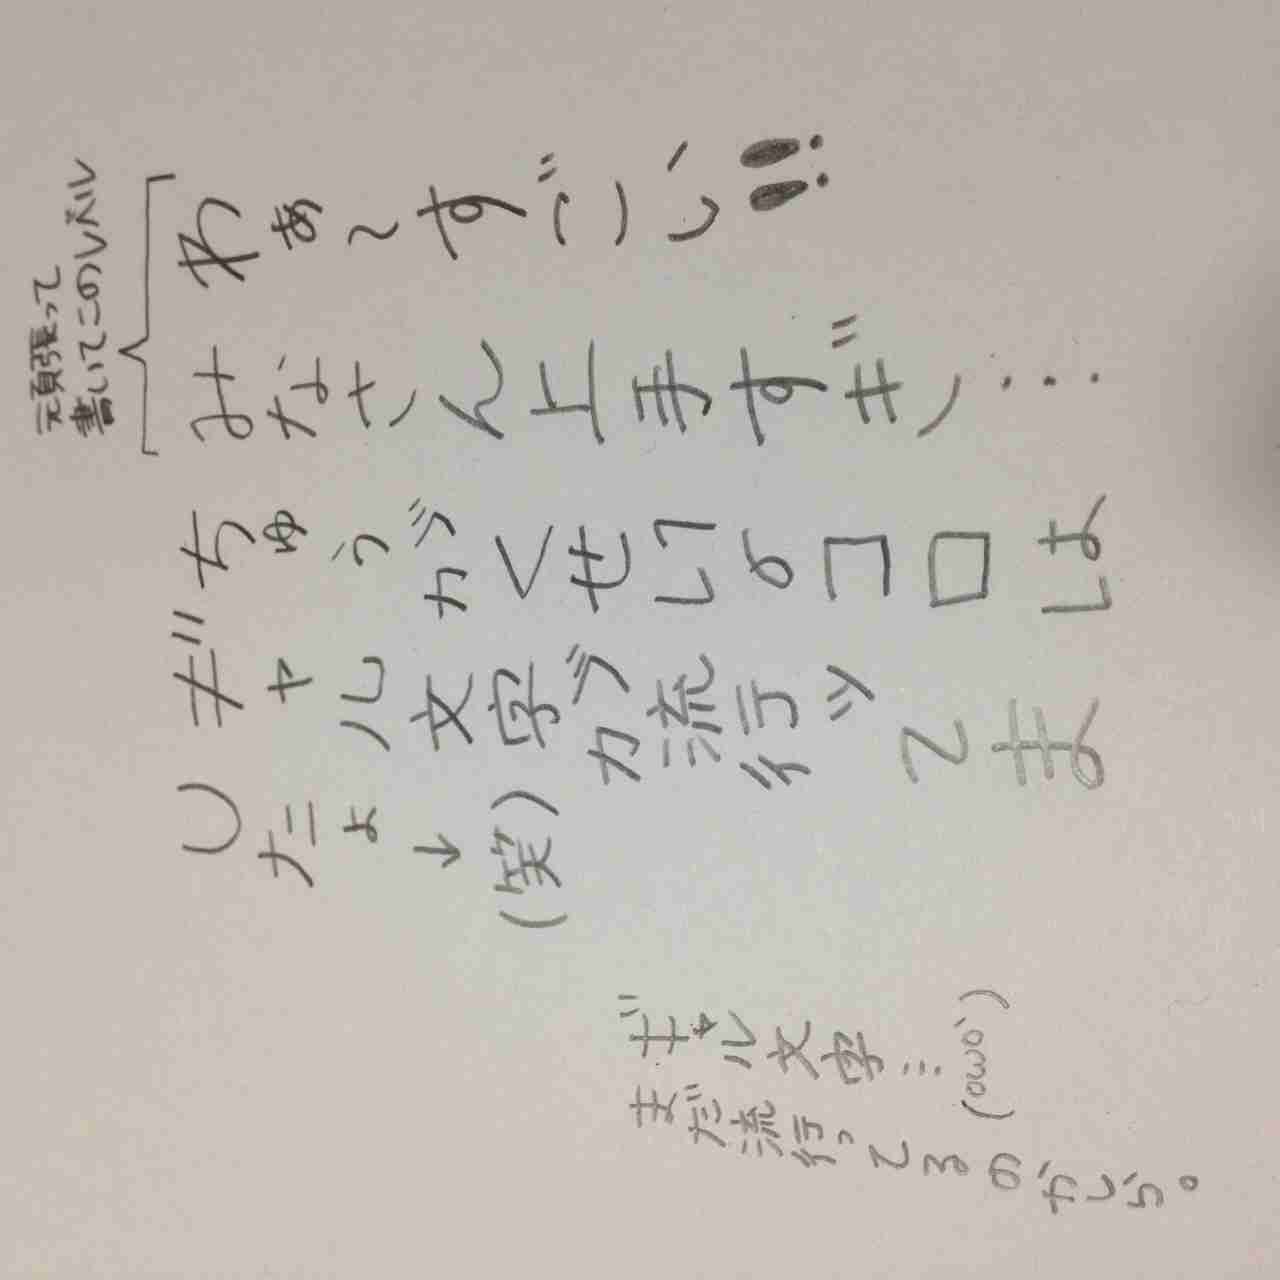 頑張って
書いてこのレベル
わぁ～すごい!!
みなさん上手すぎ…
ちゅうガくせいのコロは
ギャル文字ガ流行ッてま
Uナニょ↓(笑)
ギャル文字…(oωo`)
まだ流行ってるのかしら。